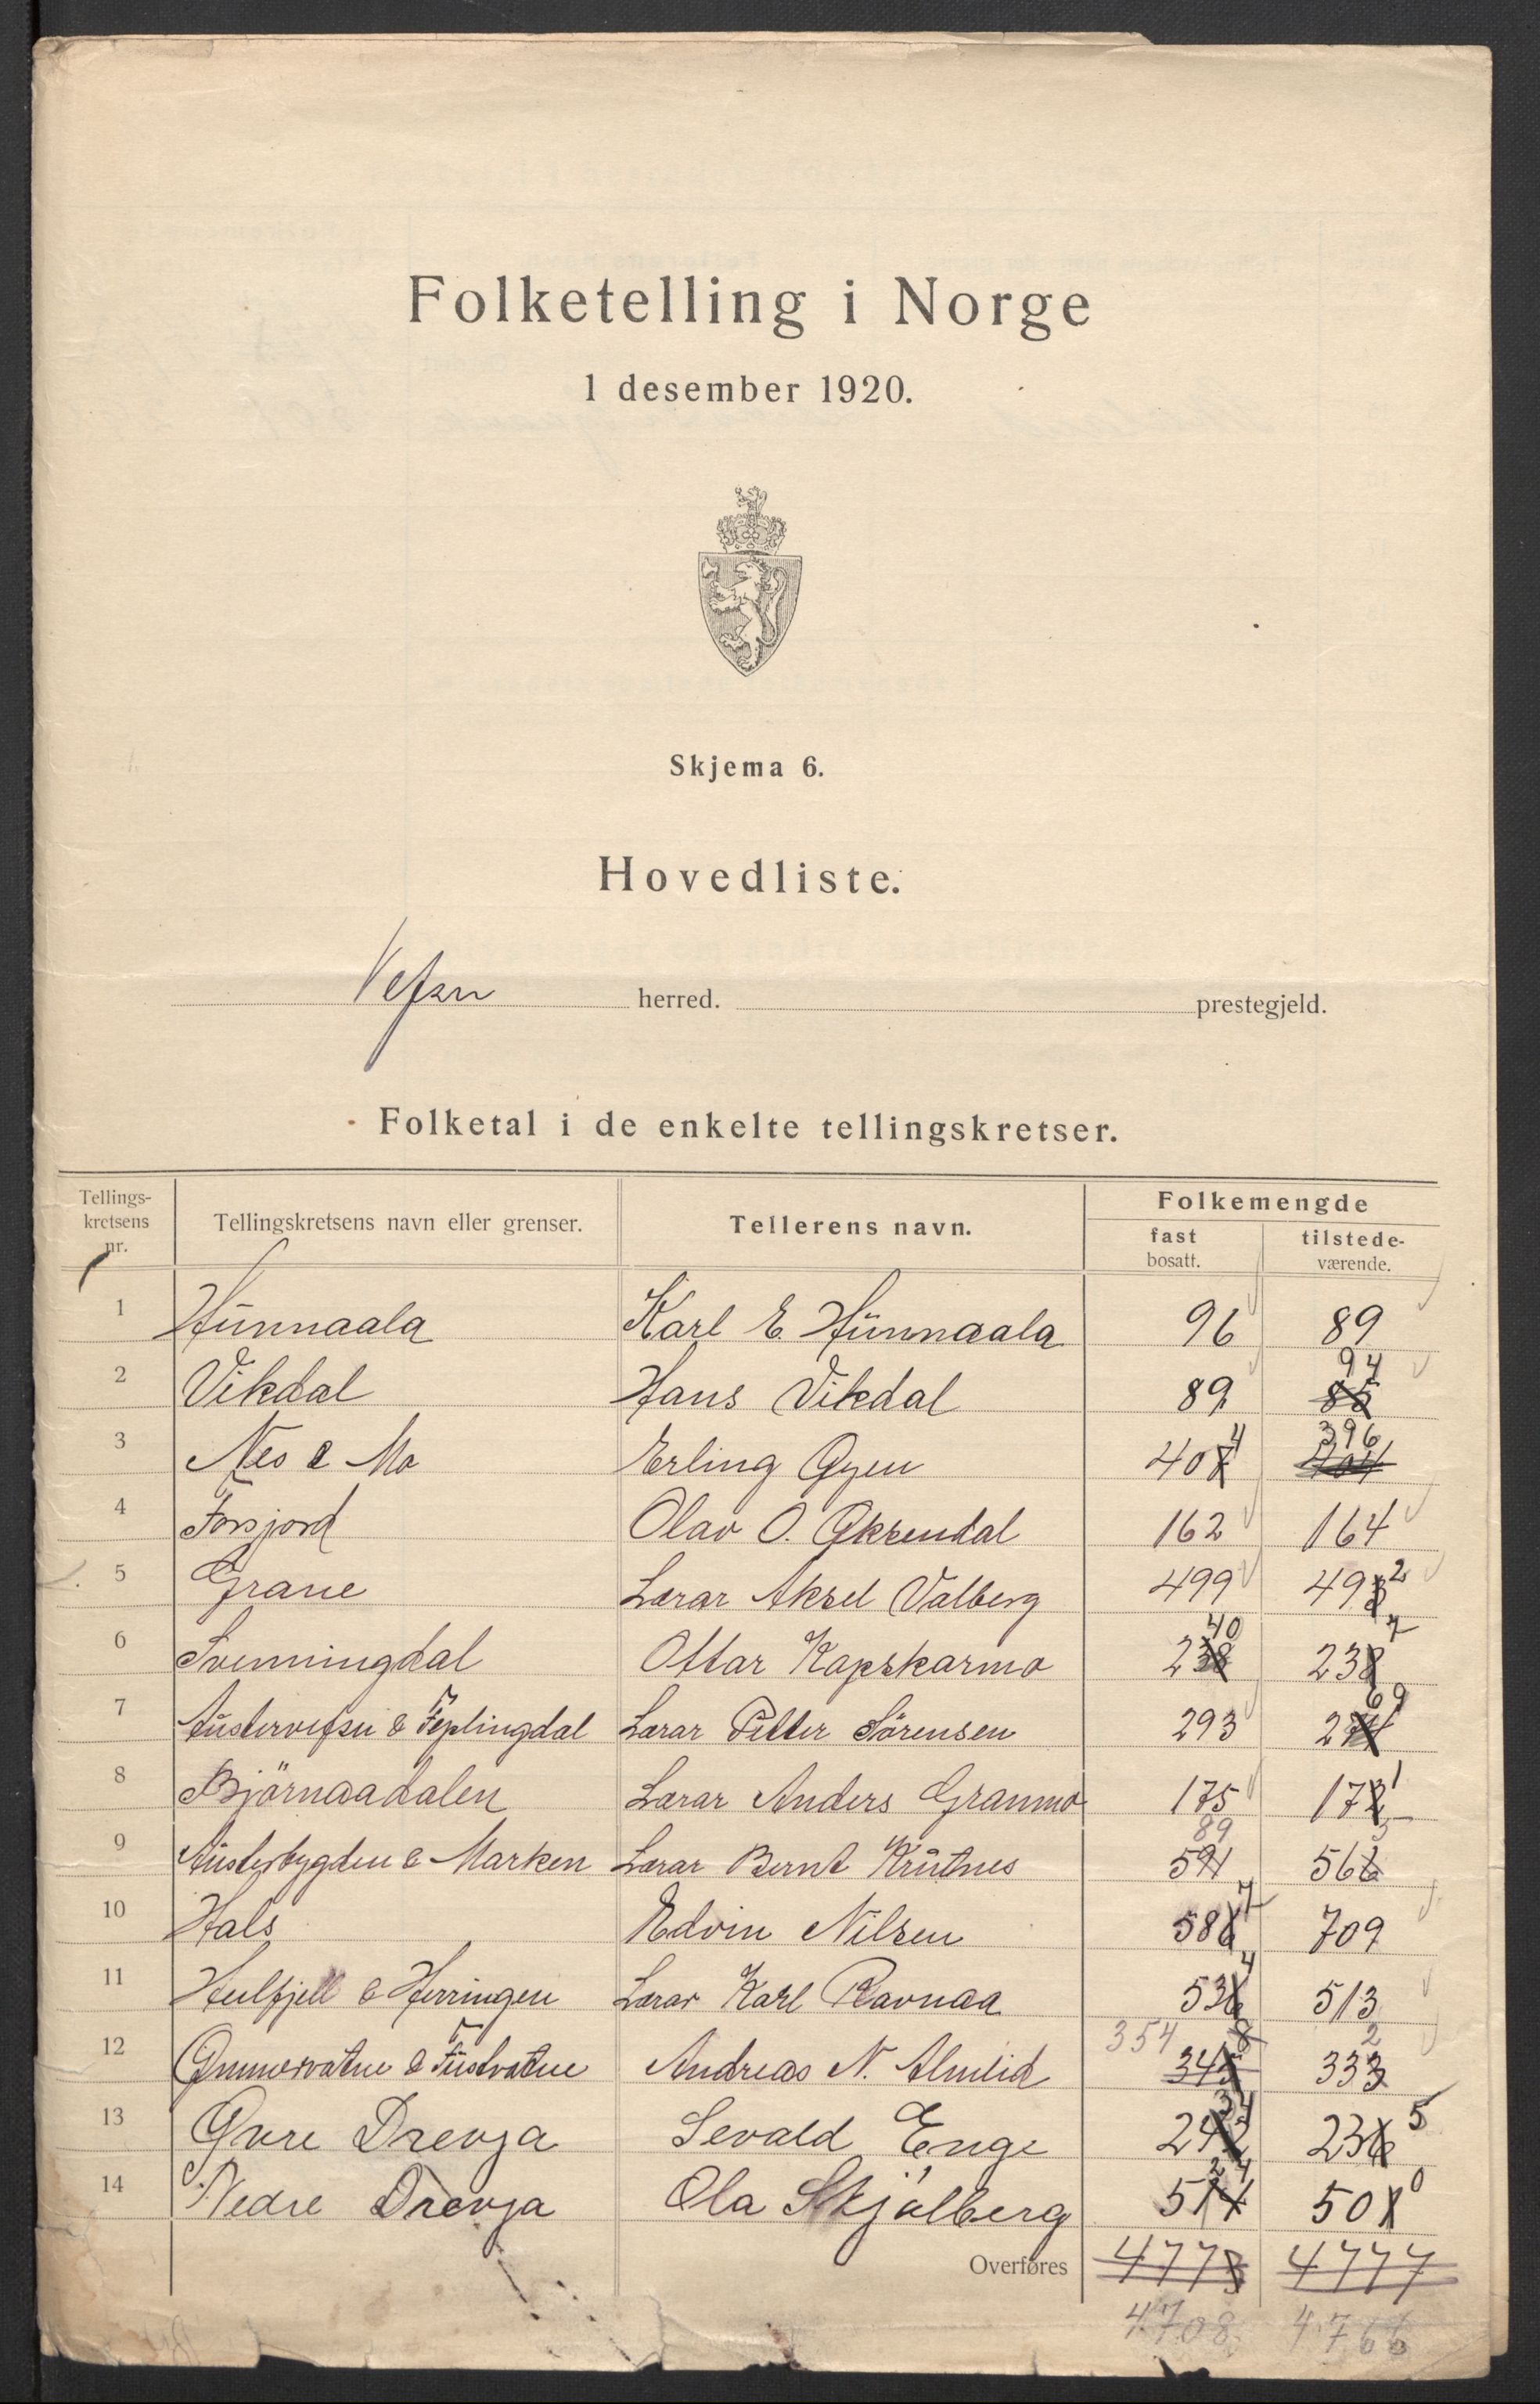 Folketelling i Norge
1 desember 1920.
Skjema 6.
Hovedliste.
Vefsn herred. prestegjeld.
Folketal i de enkelte tellingskretser.
Tellings-kretsens nr. Tellingskretsens navn eller grenser. Tellerens navn. Folkemengde
fast bosatt. tilstede-værende.
1 Hŭnnaala Karl E. Hŭnnaala 96 89
94
2 Vikdal Hans Vikdal 89 85
4 396
3 Nes & Mo Erling Øyen 407 404
4 Forsjord Olav O. Øksendal 162 164
5 Grane Lærar Aksel Valberg 499 493 2
40 7
6 Svenningdal Ottar Kapskarmo 238 238
69
7 Aŭstervefsn & Fiplingdal Lærar Petter Sørensen 293 274
8 Björnaadalen Lærar Anders Granmo 175 172 1
89 5
9 Aŭsterbygden & Marken Lærar Bernt Krŭtnes 591 566
10 Hals Edvin Nilsen 586 7 709
4
11 Hulfjell & Herringen Lærar Karl Ravnaa 536 513
354 8 2
12 Ømmervatne & Fŭstvatne Andreas N. Almlid 345 333
34
13 Øvre Drevja Sevald Enge 242 236 5
24
14 Nedre Drevja Ola Skjålberg 514 501 0
Overføres 4773 4777
4708 4766